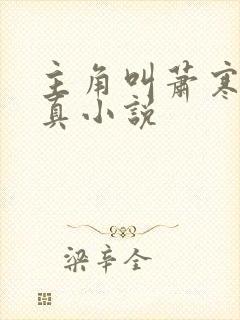 主角叫萧寒
真小说
梁辛全